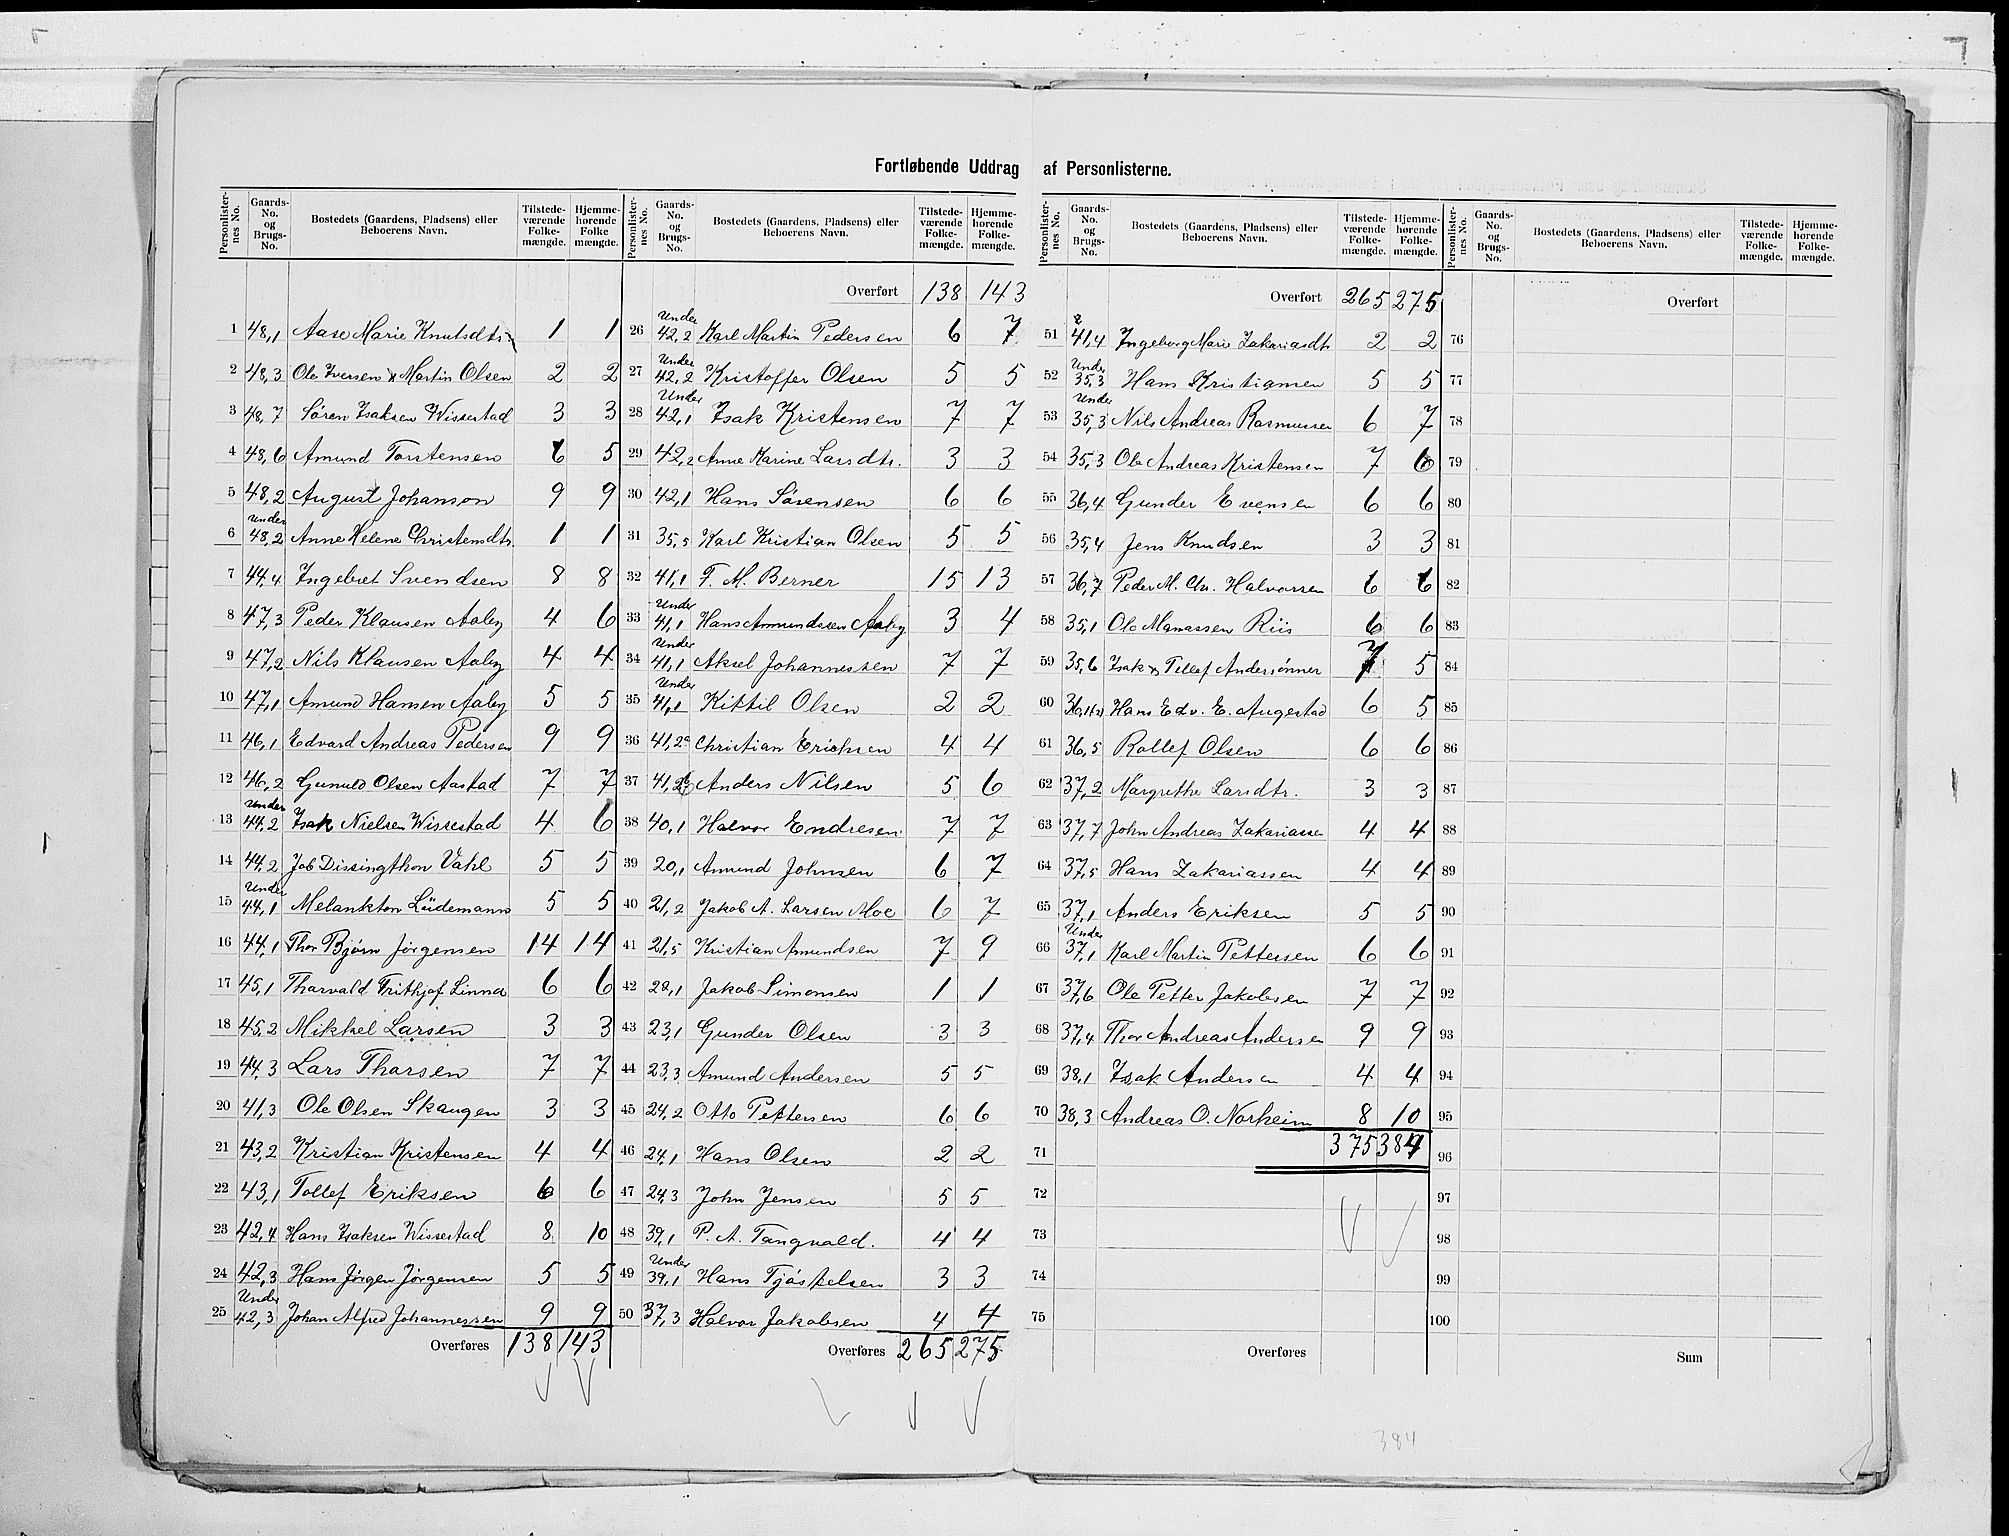 Fortløbende Uddrag af Personlisterne.
Personlister-nes No. Gaards-No. og Brugs-No. Bostedets (Gaardens, Pladsens) eller Beboerens Navn. Tilstede-værende Folke-mængde. Hjemme-hørende Folke mængde.
1 48,1 Aase Marie Knutsdtr. 1 1
2 48,3 Ole Iversen & Martin Olsen 2 2
3 48,7 Søren Isaksen Wissestad 3 3
4 48,6 Amund Torstensen 6 5
5 48,2 August Johanson 9 9
6 Under 48,2 Anne Helene Christensdtr. 1 1
7 44,4 Ingebret Svendsen 8 8
8 47,3 Peder Klausen Aaby 4 6
9 47,2 Nils Klausen Aaby 4 4
10 47,1 Amund Hansen Aaby 5 5
11 46,1 Edvard Andreas Pedersen 9 9
12 46,2 Gunuld Olsen Aastad 7 7
13 Under 44,2 Isak Nielsen Wissestad 4 6
14 44,2 Job Dissingthon Vahl 5 5
15 Under 44,1 Melankton Lüdemann 5 5
16 44,1 Thor Bjørn Jørgensen 14 14
17 45,1 Tharvald Frithjof Linna 6 6
18 45,2 Mikkel Larsen 3 3
19 44,3 Lars Tharsen 7 7
20 41,3 Ole Olsen Skaugen 3 3
21 43,2 Kristian Kristensen 4 4
22 43,1 Tollef Eriksen 6 6
23 42,4 Hans Isaksen Wissestad 8 10
24 42,3 Hans Jørgen Jørgensen 5 5
25 Under 42,3 Johan Alfred Johannessen 9 9
Overføres 138 143
Personlister-nes No. Gaards-No. og Brugs-No. Bostedets (Gaardens, Pladsens) eller Beboerens Navn. Tilstede-værende Folke-mængde. Hjemme-hørende Folke-mængde.
Overført 138 143
26 Under 42,2 Karl Martin Pedersen 6 7
27 Under 42,2 Kristoffer Olsen 5 5
28 Under 42,1 Isak Kristensen 7 7
29 42,2 Anne Karine Larsdtr. 3 3
30 42,1 Hans Sørensen 6 6
31 35,5 Karl Kristian Olsen 5 5
32 41,1 F. M. Berner 15 13
33 Under 41,1 Hans Amundsen Aaby 3 4
34 Under 41,1 Aksel Johannessen 7 7
35 Under 41,1 Kittil Olsen 2 2
36 41,2a Christian Erichsen 4 4
37 41,2b Anders Nilsen 5 6
38 40,1 Halvor Endresen 7 7
39 20,1 Amund Johnsen 6 7
40 21,2 Jakob A. Larsen Moe 6 7
41 21,5 Kristian Amundsen 7 9
42 22,1 Jakob Simonsen 1 1
43 23,1 Gunder Olsen 3 3
44 23,3 Amund Andersen 5 5
45 24,2 Otto Pettersen 6 6
46 24,1 Hans Olsen 2 2
47 24,3 John Jensen 5 5
48 39,1 P. A. Tangvald. 4 4
49 Under 39,1 Hans Tjøstelsen 3 3
50 37,3 Halvor Jakobsen 4 4
Overføres 265 275
Personlister-nes No. Gaards-No. og Brugs-No. Bostedets (Gaardens, Pladsens) eller Beboerens Navn. Tilstede-værende Folke-mængde. Hjemme-hørende Folke-mængde.
Overført 265 275
51 41,4 Ingeborg Marie Zakariasdtr 2 2
52 Under 35,3 Hans Kristiansen 5 5
53 Under 35,3 Nils Andreas Rasmussen 6 7
54 35,3 Ole Andreas Kristensen 7 6
55 36,4 Gunder Evensen 6 6
56 35,4 Jens Knudsen 3 3
57 36,7 Peder M. Chr. Halvorsen 6 6
58 35,1 Ole Manassen Riis 6 6
59 35,6 Isak & Tellef Anderssønner 7 5
60 Hans Edv. E. Augestad 6 5
61 36,5 Rollef Olsen 6 6
62 37,2 Margrethe Larsdtr. 3 3
63 37,7 John Andreas Zakariassen 4 4
64 37,5 Hans Zakariassen 4 4
65 37,1 Anders Eriksen 5 5
66 Under 37,1 Karl Martin Pettersen 6 6
67 37,6 Ole Petter Jakobsen 7 7
68 37,4 Thor Andreas Andersen 9 9
69 38,1 Isak Andersen 4 4
70 38,3 Andreas O. Norheim 8 10
71 375 384
72
73
74
75
Overføres
Personlister-nes No. Gaards-No. og Brugs-No. Bostedets (Gaardens, Pladsens) eller Beboerens Navn. Tilstede-værende Folke-mængde. Hjemme-hørende Folke-mængde.
Overført
76
77
78
79
80
81
82
83
84
85
86
87
88
89
90
91
92
93
94
95
96
97
98
99
100
Sum
384